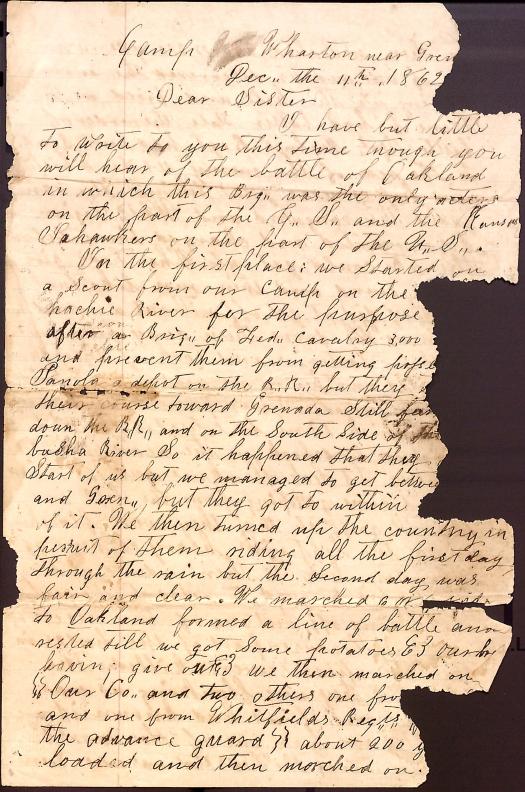 Camp Wharton near Gren
Dec,, the 11th, 1862
Dear Sister
I have but little
to write to you this time though you
will hear of the battle of Oakland
in which this Brig,, was the only acters
on the part of the C,, S,, and the Kansas
Jahawkers on the part of the U,, S,,.
In the first place; we started on
a scout from our camp on the
hachie River for the purpose
after a Brig,, of Fed,, Cavelry 3,000
and prevent them from getting posse
Panola a depot on the R,,R,, but they
their course toward Grenada still far
down the RR,, and on the South Side of the
busha River So it happened that they
Start of us but we managed to get betwe
and Gren,, but they got to within
of it. We then turned up the country in
persuit of them riding all the first day
through the rain but the second day was
fair and clear. We marched
to Oakland formed a line of battle and
rested till we got some potatoes our
havin, give out we then marched on
Our Co,, and two others one fro
and one from Whitfields Regts
the advance guard about 200 y
loaded and then marched on.